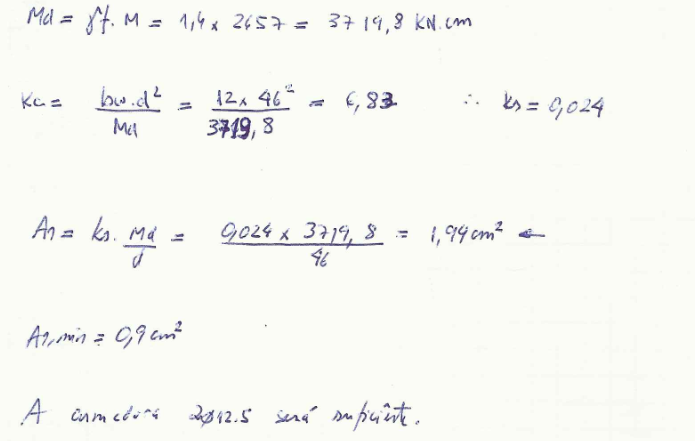 Md = γf. M = 1,4 x 2657 = 3719,8 KN.cm
Kc = bw.d² / Md = 12 x 46² / 3719,8 = 6,83 ∴ ks = 0,024
As = ks. Md / d = 0,024 x 3719,8 / 46 = 1,94 cm² ←
As,min = 0,9 cm²
A armadura 2ø12.5 será suficiente.